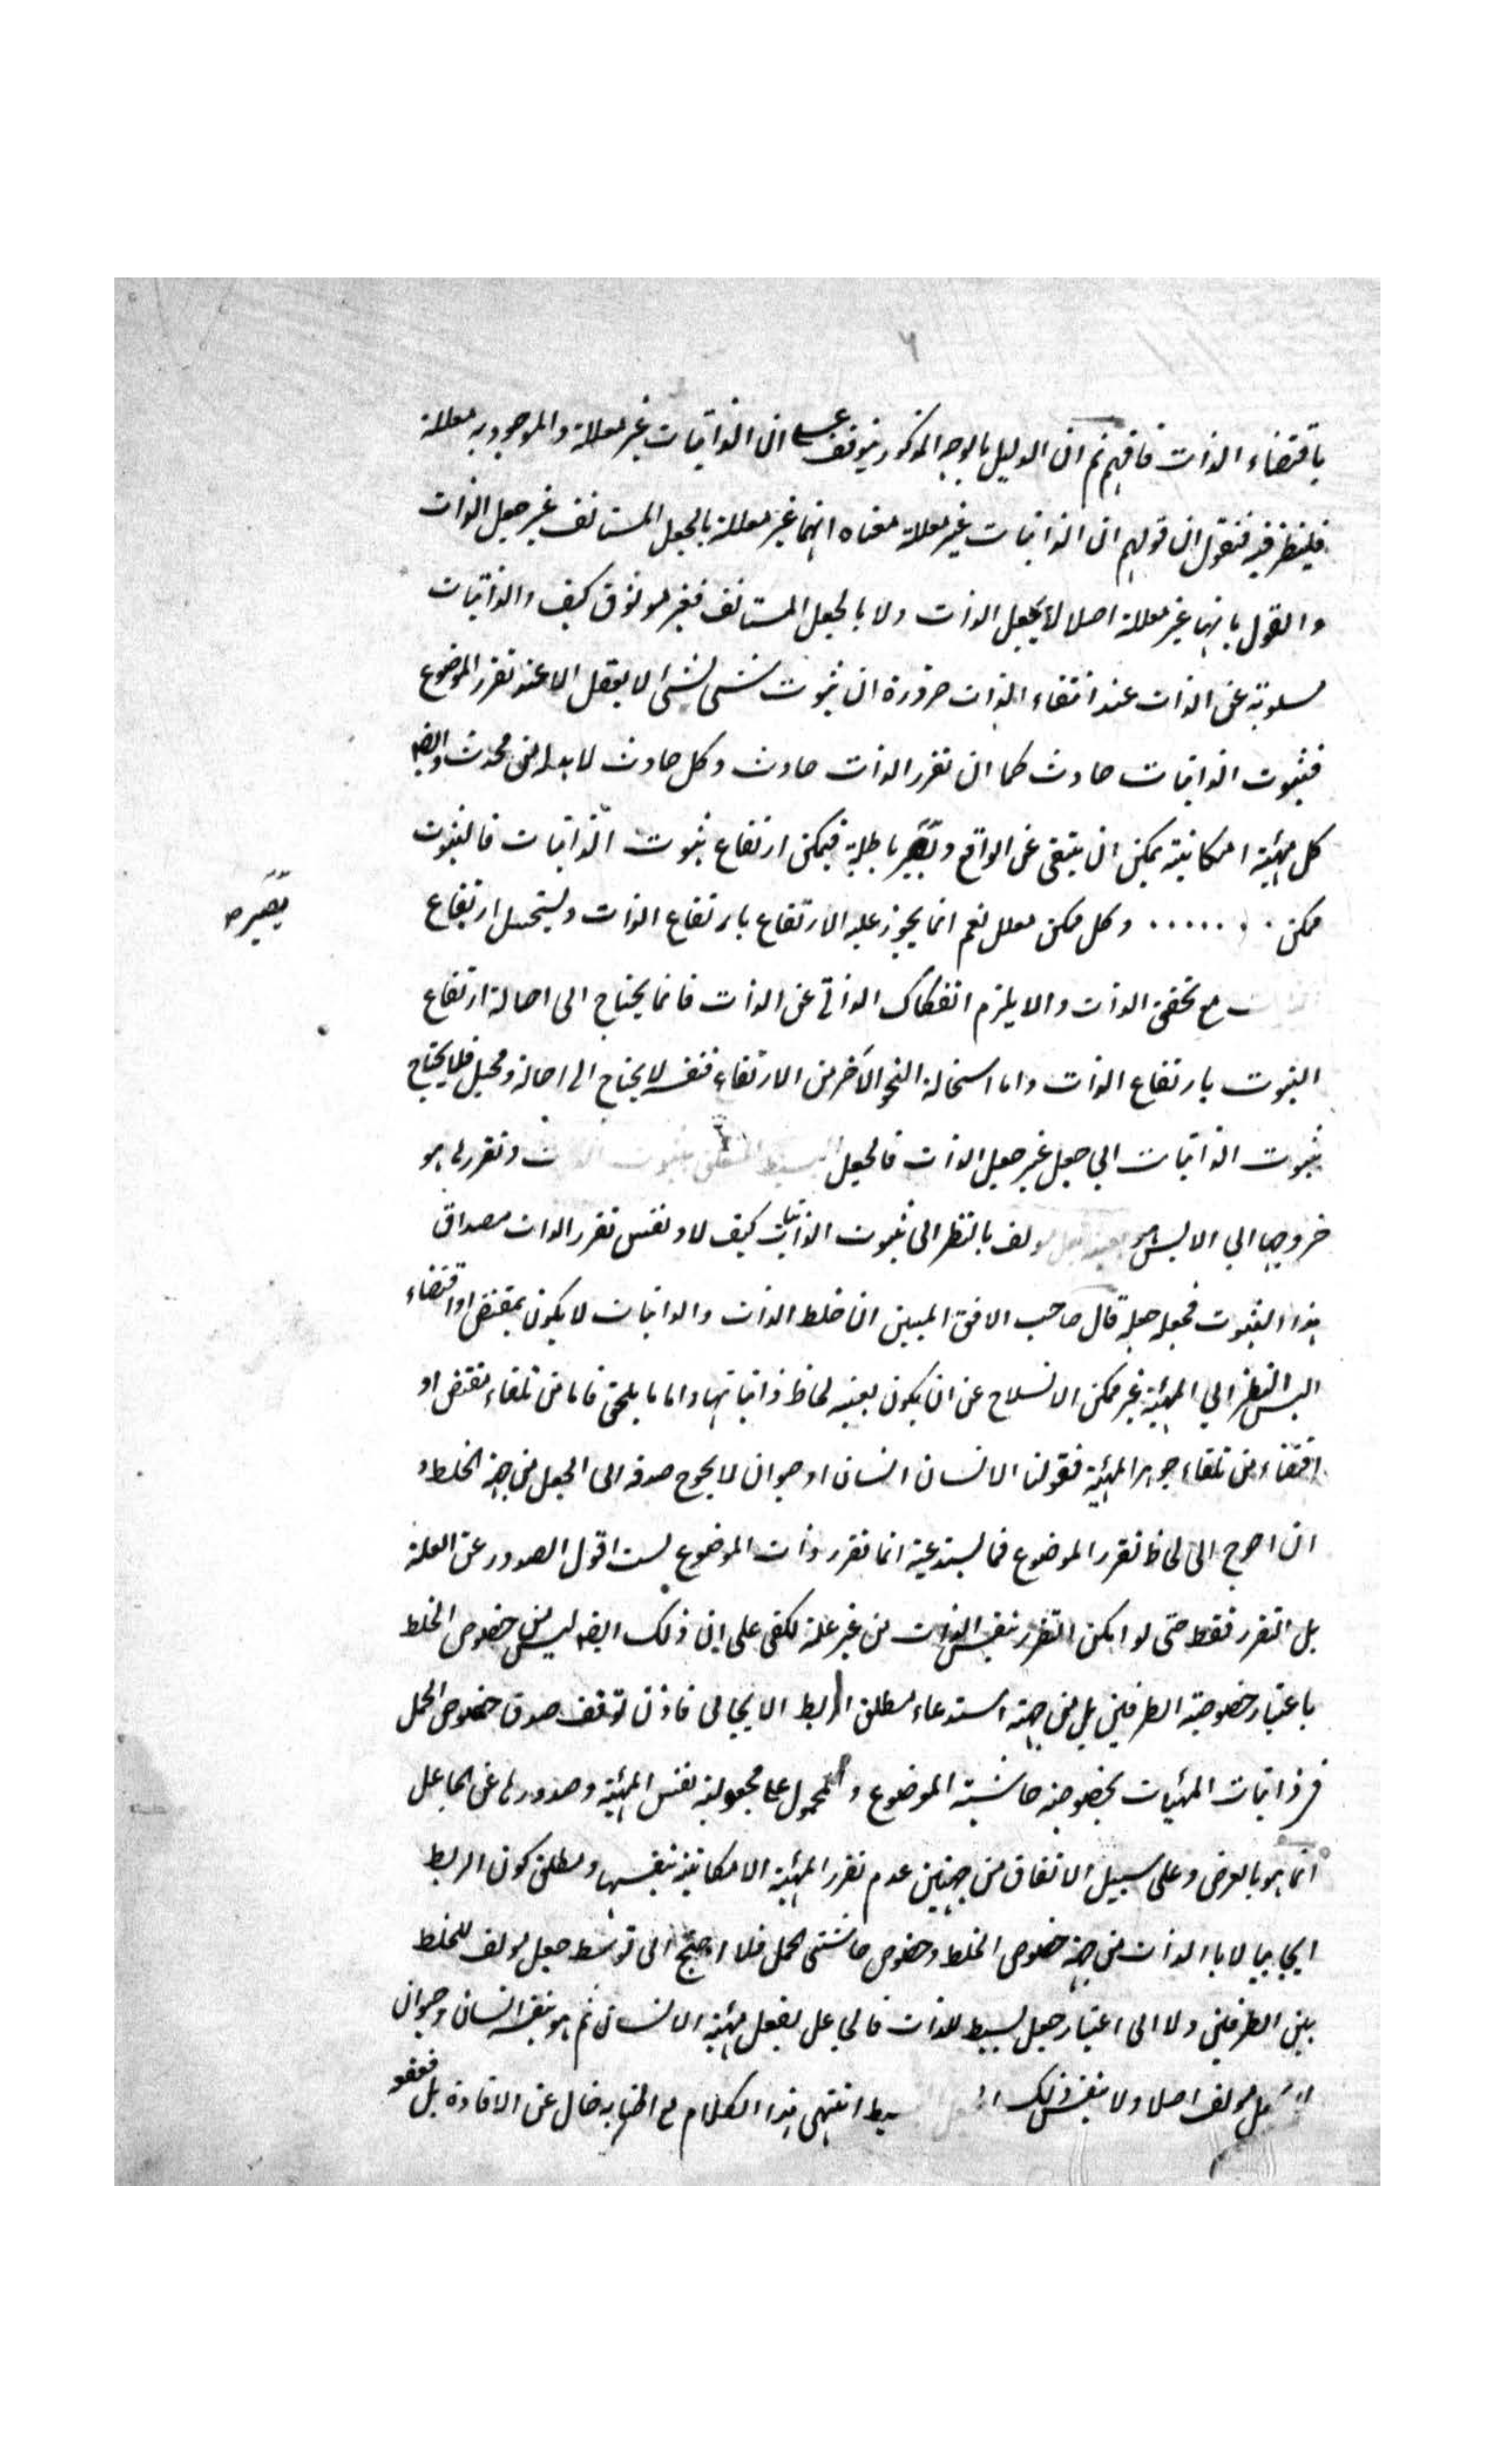 ٦
باقتضاء الذات فافهم ثم ان الدليل بالوجه المذكور يتوقف على ان الذاتيات غير معللة والموجودية معللة
فلينظر فيه فنقول ان قولهم ان الذاتيات غير معللة معناه انها غير معللة بالجعل المستانف غير جعل الذات
والقول بانها غير معللة اصلا لا بجعل الذات ولا بالجعل المستانف فغير موثوق كيف والذاتيات
مسلوبة عن الذات عند انتفاء الذات ضرورة ان ثبوت شئ لشئ لا يعقل الا عند تقرر الموضوع
فثبوت الذاتيات حادث كما ان تقرر الذات حادث وكل حادث لابد له من محدث وايضا
كل مهية امكانية يمكن ان ينتفى عن الواقع وتصير باطلة فيمكن ارتفاع ثبوت الذاتيات فالثبوت
تصيره
ممكن وكل ممكن معلل نعم انما يجوز عليه الارتفاع بارتفاع الذات ويستحيل ارتفاع
مع تحقق الذات والا يلزم انفكاك الذاتي عن الذات فانما يحتاج الى احالة ارتفاع
الثبوت بارتفاع الذات واما استحالة النحو الآخر من الارتفاع فنفسه لا يحتاج الى احالة ومحيل فلا يحتاج
ثبوت الذاتيات الي جعل غير جعل الذات فالجعل البسيط المتعلق بثبوت الذات وتقررها هو
خروجها الي الايس هو بعينه جعل مولف بالنظر الى ثبوت الذاتيات كيف لا ونفس تقرر الذات مصداق
هذا الثبوت فجعله جعله قال صاحب الافق المبين ان خلط الذات والذاتيات لا يكون بمقتض او اقتضاء
اليس النظر الي المهية غير ممكن الانسلاخ عن ان يكون بعينه لحاظ ذاتياتها واما ما يلحق فاما من تلقاء مقتض او
اقتضاء من تلقاء جوهر المهية فقولنا الانسان انسان او حيوان لا يحوج صدقه الى الجعل من جهة الخلط و
ان احوج الى لحاظ تقرر الموضوع فما يستدعيه انما تقرر ذات الموضوع لست اقول الصدور عن العلة
بل التقرر فقط حتى لو امكن التقرر بنفس الذات من غير علة لكفى على ان ذلك ايضا ليس من خصوص الخلط
باعتبار خصوصية الطرفين بل من جهة استدعاء مطلق الربط الايجابى فاذن توقف صدق خصوص الحمل
فى ذاتيات المهيات بخصوصية حاشية الموضوع والمحمول على مجعولية نفس المهية وصدورها عن الجاعل
انما هو بالعرض وعلى سبيل الاتفاق من جهتين عدم تقرر المهية الامكانية بنفسها ومطلق كون الربط
ايجابيا لا بالذات من جهة خصوص الخلط وخصوص حاشيتى الحمل فلا احتيج الى توسط جعل مولف للخلط
بين الطرفين ولا الى اعتبار جعل بسيط للذات فالجاعل يفعل مهية الانسان ثم هو بنفسه انسان وحيوان
لا بجعل مولف اصلا ولا بنفس ذلك الجعل البسيط انتهى هذا الكلام مع اطنابه خال عن الافادة بل